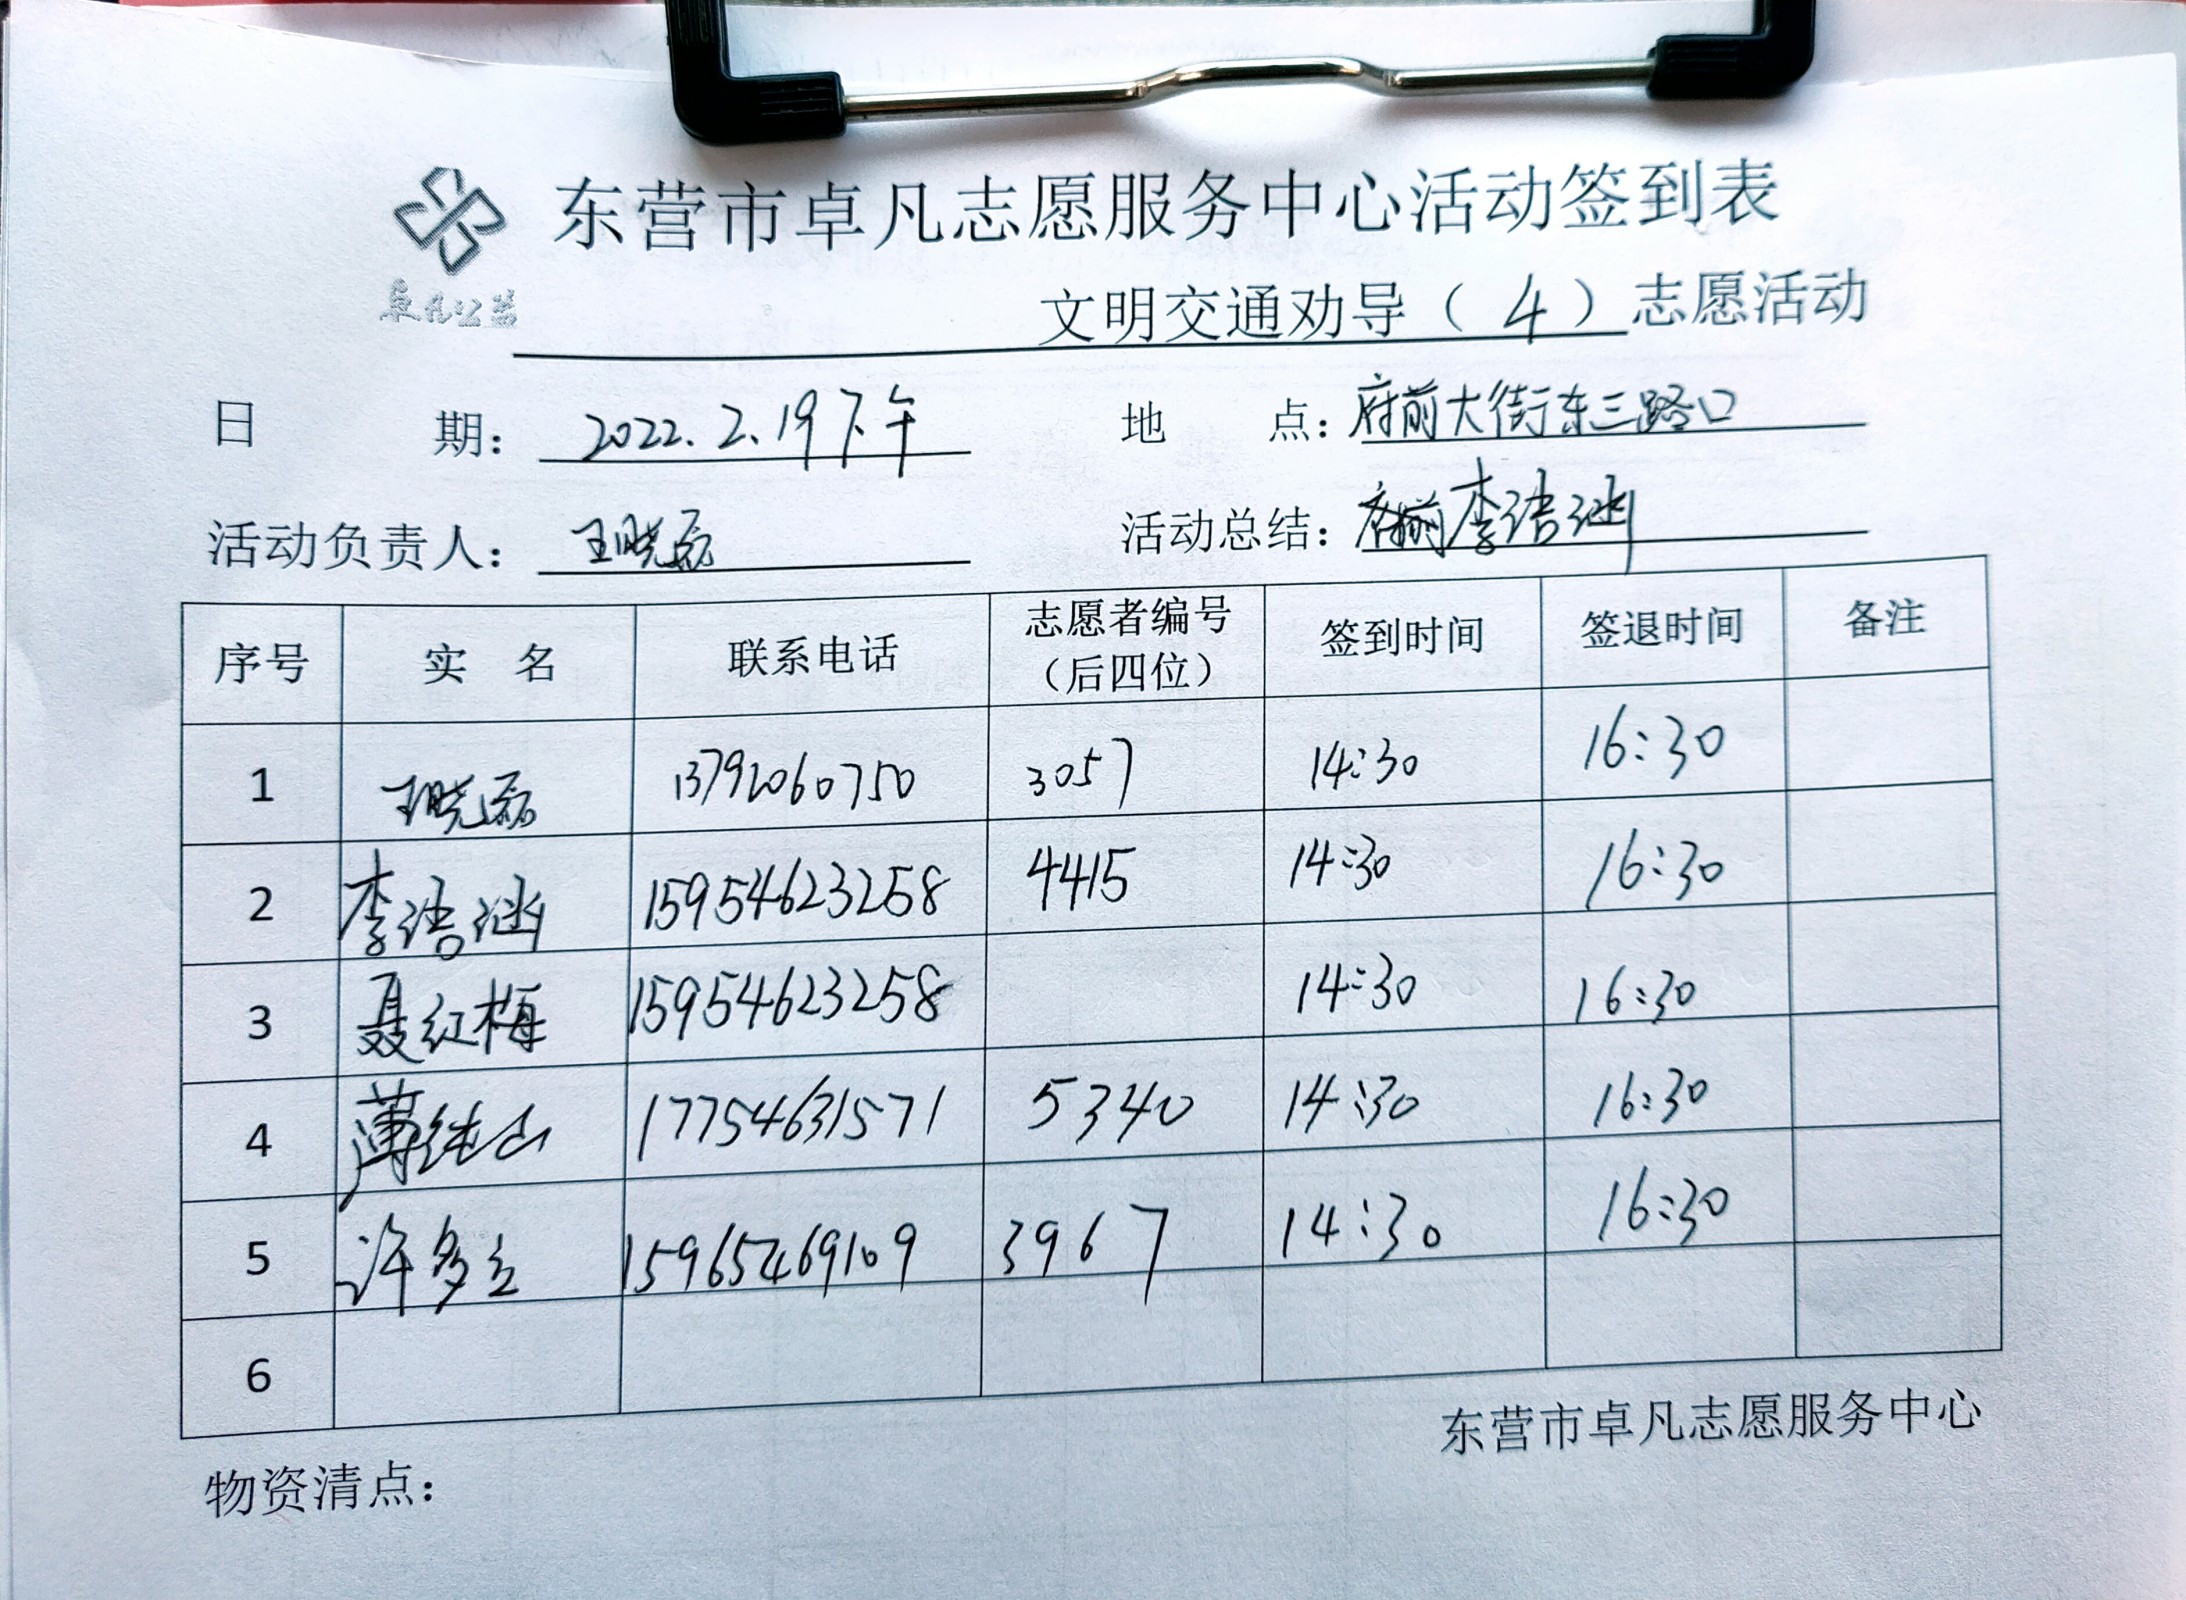 东营市卓凡志愿服务中心活动签到表
卓凡公益
文明交通劝导（4）志愿活动
日期：2022.2.19下午 地点：府前大街东三路口
活动负责人：王晓磊 活动总结：李浩涵
序号 实名 联系电话 志愿者编号（后四位） 签到时间 签退时间 备注
1 王晓磊 13792060750 3057 14:30 16:30
2 李浩涵 15954623258 4415 14:30 16:30
3 聂红梅 15954623258 14:30 16:30
4 薄纯山 17754631571 5340 14:30 16:30
5 许多立 15965469109 3967 14:30 16:30
6
东营市卓凡志愿服务中心
物资清点：